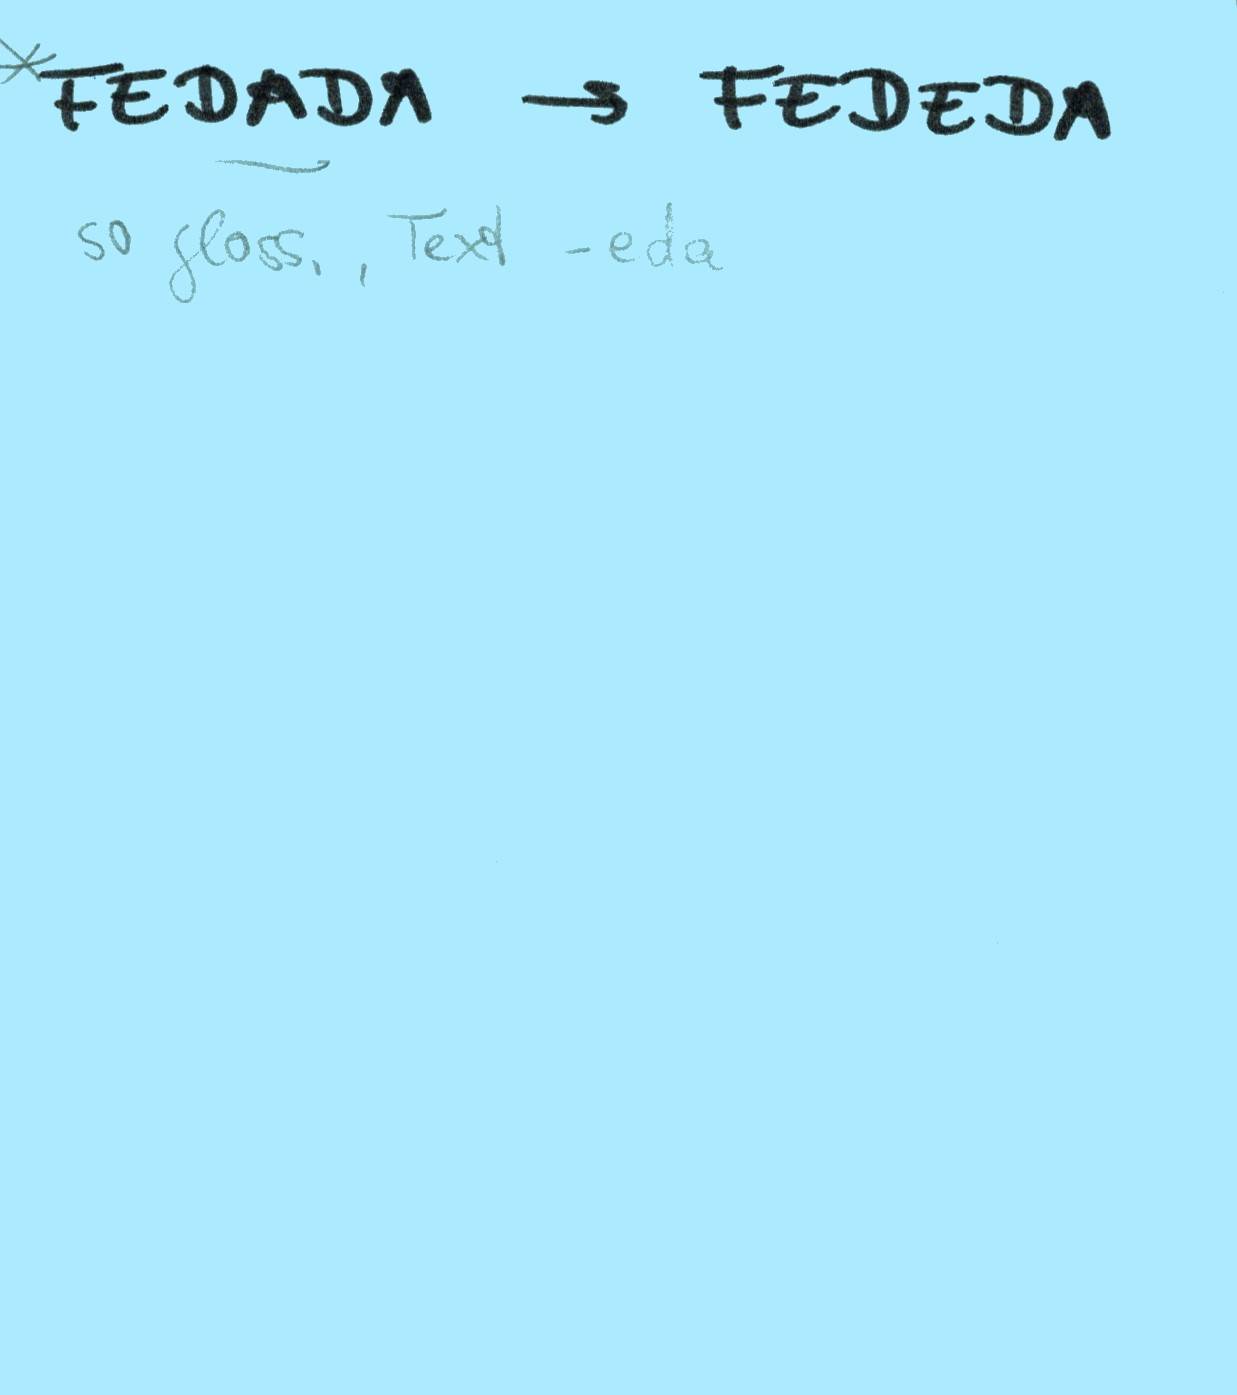 *FEDADA → FEDEDA
so gloss., Text -eda